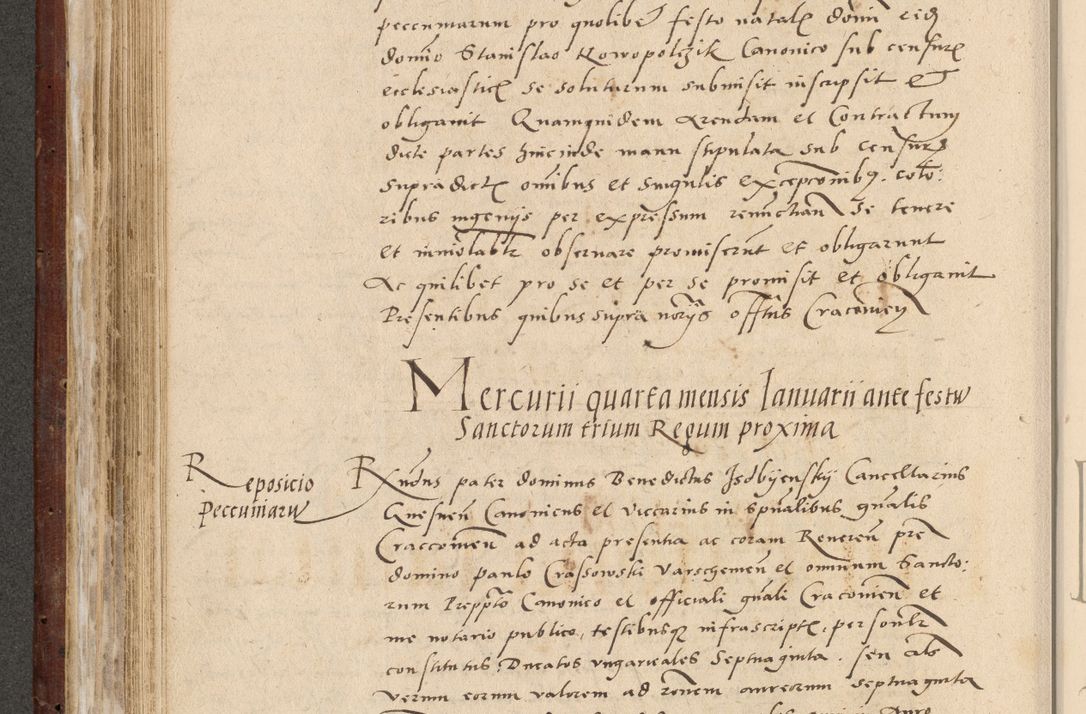 peccuniarum pro quolibet festo natalis domini eidem
domino Stanislao Rowopolczik Canonico sub censuris
ecclesiasticis se soluturum submisit inscripsit et
obligauit Quamquidem Arendam et Contractum
dicte partes hincinde manu stipulata sub censuris
supradictis omibus et singulis excepcionibus colo:
ribus ingenijs per expressum renunctian se tenere
et inuiolabilr obseruare promiserunt et obligarunt
Ac quilibet pro se et per se promisit et obligauit
Presentibus quibus supra norijs offitus Cracouien
Mercurii quarta mensis Ianuarii ante festum
Sanctorum trium Regum proxima
Reposicio
Peccuniarum
Rndus pater dominus Benedictus Isdbijenskij Cancellarius
Gnesnen Canonicus et viccarius in spualibus gnalis
Craccouien ad acta presentia ac coram Reueren pre
domino paulo Crassowski varschewien et omnium Sancto:
rum Preppto Canonico et officiali gnali Cracouien et
me notario publico, testibusq infrascriptis, personlr
constitutus Ducatos vngaricales Septuaginta seu als
verum eorum valorem ad ronem aureorum septuaginta